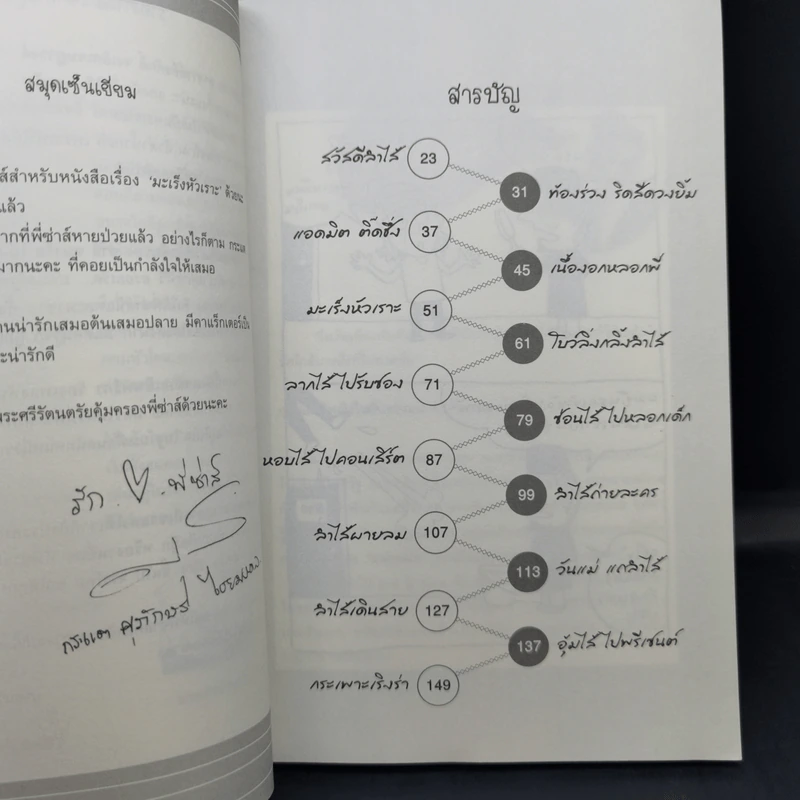 สมุดเซ็นเยี่ยม
ส์สำหรับหนังสือเรื่อง 'มะเร็งหัวเราะ' ด้วยนะ
แล้ว
ากที่พี่ซ่าส์หายป่วยแล้ว อย่างไรก็ตาม กระแต
มากนะคะ ที่คอยเป็นกำลังใจให้เสมอ
านน่ารักเสมอต้นเสมอปลาย มีคาแร็กเตอร์เป็น
ะน่ารักดี
พระศรีรัตนตรัยคุ้มครองพี่ซ่าส์ด้วยนะคะ
รัก พี่ซ่าส์
กระแต ศุภักษร
สารบัญ
สวัสดีลำไส้ 23
31 ท้องร่วง ริดสีดวงยิ้ม
แอดมิต ติ๊ดชึ่ง 37
45 เนื้องอกหลอกพี่
มะเร็งหัวเราะ 51
61 โบว์ลิ่งกลิ้งลำไส้
ลากไส้ ไปรับซอง 71
79 ซ่อนไส้ ไปหลอกเด็ก
หอบไส้ ไปคอนเสิร์ต 87
99 ลำไส้ถ่ายละคร
ลำไส้ผายลม 107
113 วันแม่ แถลำไส้
ลำไส้เดินสาย 127
137 อุ้มไส้ ไปพรีเซนต์
กระเพาะเริงร่า 149